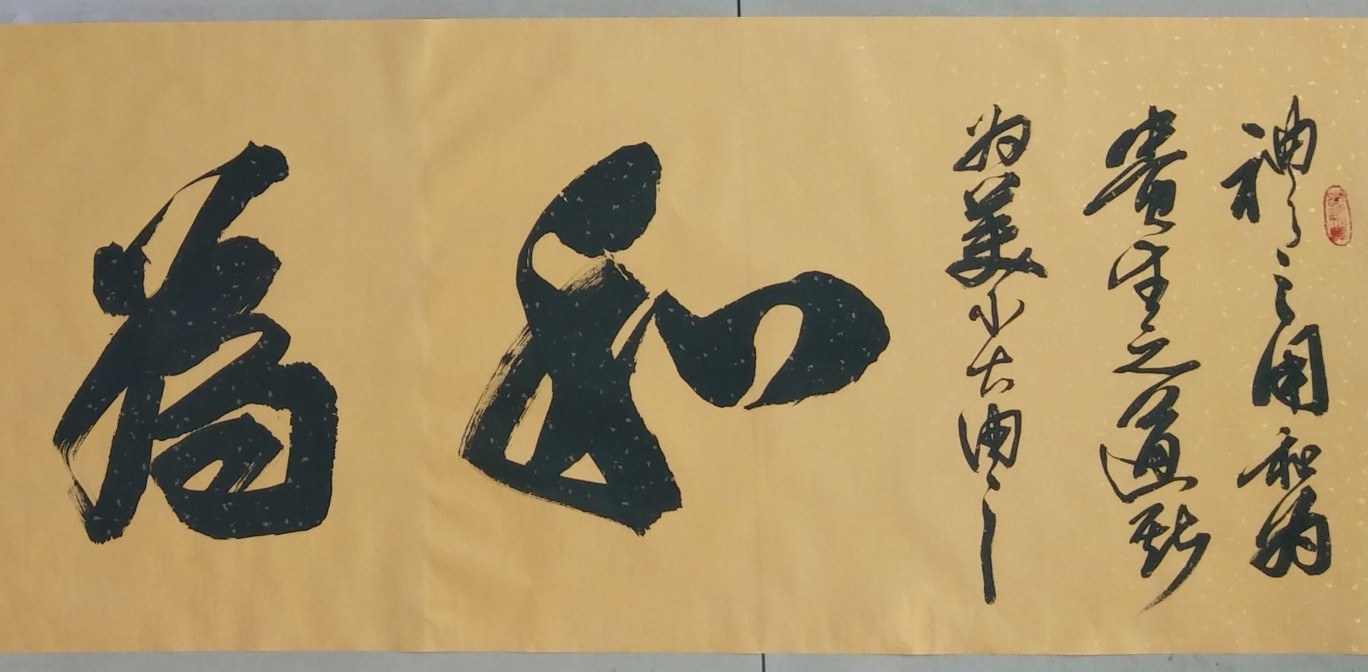 禮之用和為
貴先王之道斯
為美小大由之
和為